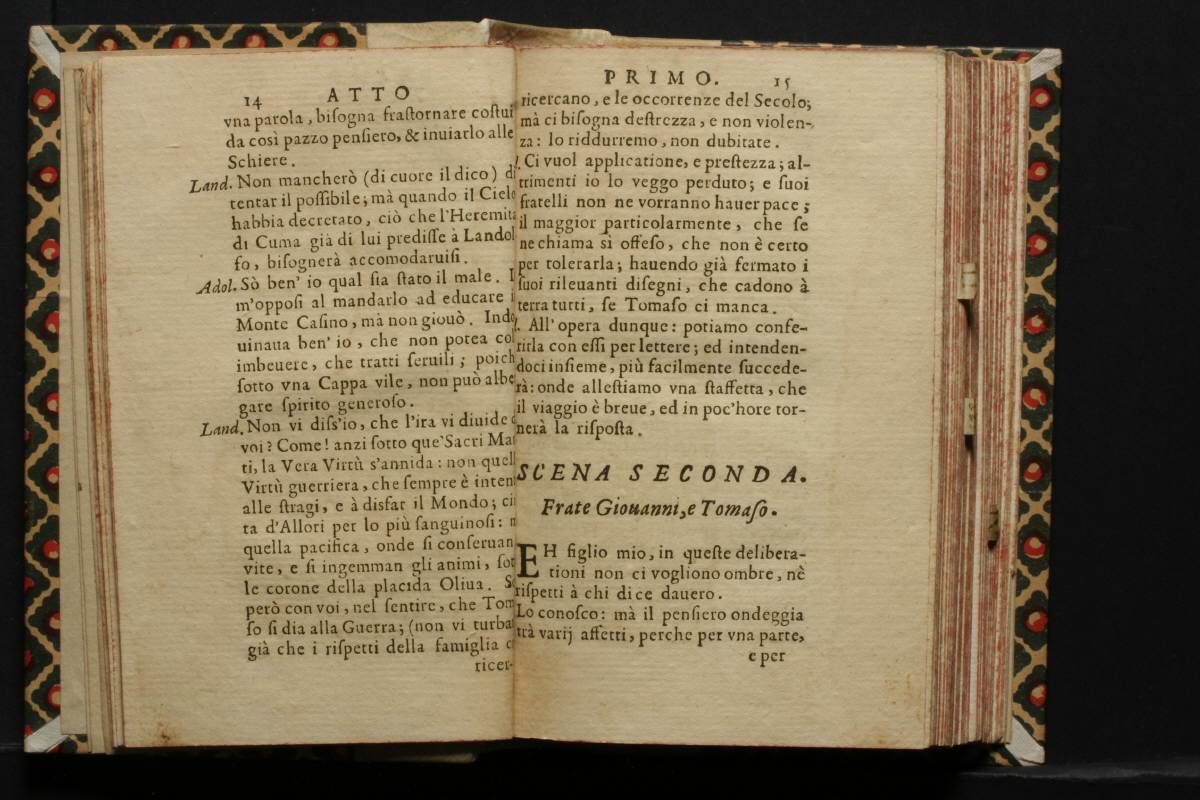 14 ATTO
vna parola, bisogna frastornare costui
da così pazzo pensiero, & inuiarlo alle
Schiere.
Land. Non mancherò (di cuore il dico) di
tentar il possibile; mà quando il Cielo
habbia decretato, ciò che l'Heremita
di Cuma già di lui predisse à Landol
fo, bisognerà accomodaruisi.
Adol. Sò ben' io qual sia stato il male. I
m'opposi al mandarlo ad educare i
Monte Casino, mà non giouò. Indo
uinaua ben' io, che non potea col
imbeuere, che tratti seruili; poich
sotto vna Cappa vile, non può albe
gare spirito generoso.
Land. Non vi diss'io, che l'ira vi diuide d
voi? Come! anzi sotto que' Sacri Man
ti, la Vera Virtù s'annida: non quell
Virtù guerriera, che sempre è inten
alle stragi, e à disfar il Mondo; cin
ta d'Allori per lo più sanguinosi: m
quella pacifica, onde si conseruan
vite, e si ingemman gli animi, sot
le corone della placida Oliua. Se
però con voi, nel sentire, che Tom
so si dia alla Guerra; (non vi turbat
già che i rispetti della famiglia c
ricer-
PRIMO. 15
ricercano, e le occorrenze del Secolo;
mà ci bisogna destrezza, e non violen-
za: lo riddurremo, non dubitate.
l. Ci vuol applicatione, e prestezza; al-
trimenti io lo veggo perduto; e suoi
fratelli non ne vorranno hauer pace;
il maggior particolarmente, che se
ne chiama sì offeso, che non è certo
per tolerarla; hauendo già fermato i
suoi rileuanti disegni, che cadono à
terra tutti, se Tomaso ci manca.
l. All'opera dunque: potiamo confe-
rirla con essi per lettere; ed intenden-
doci insieme, più facilmente succede-
rà: onde allestiamo vna staffetta, che
il viaggio è breue, ed in poc'hore tor-
nerà la risposta.
SCENA SECONDA.
Frate Giouanni, e Tomaso.
EH figlio mio, in queste delibera-
tioni non ci vogliono ombre, nè
rispetti à chi dice dauero.
Lo conosco: mà il pensiero ondeggia
trà varij affetti, perche per vna parte,
e per